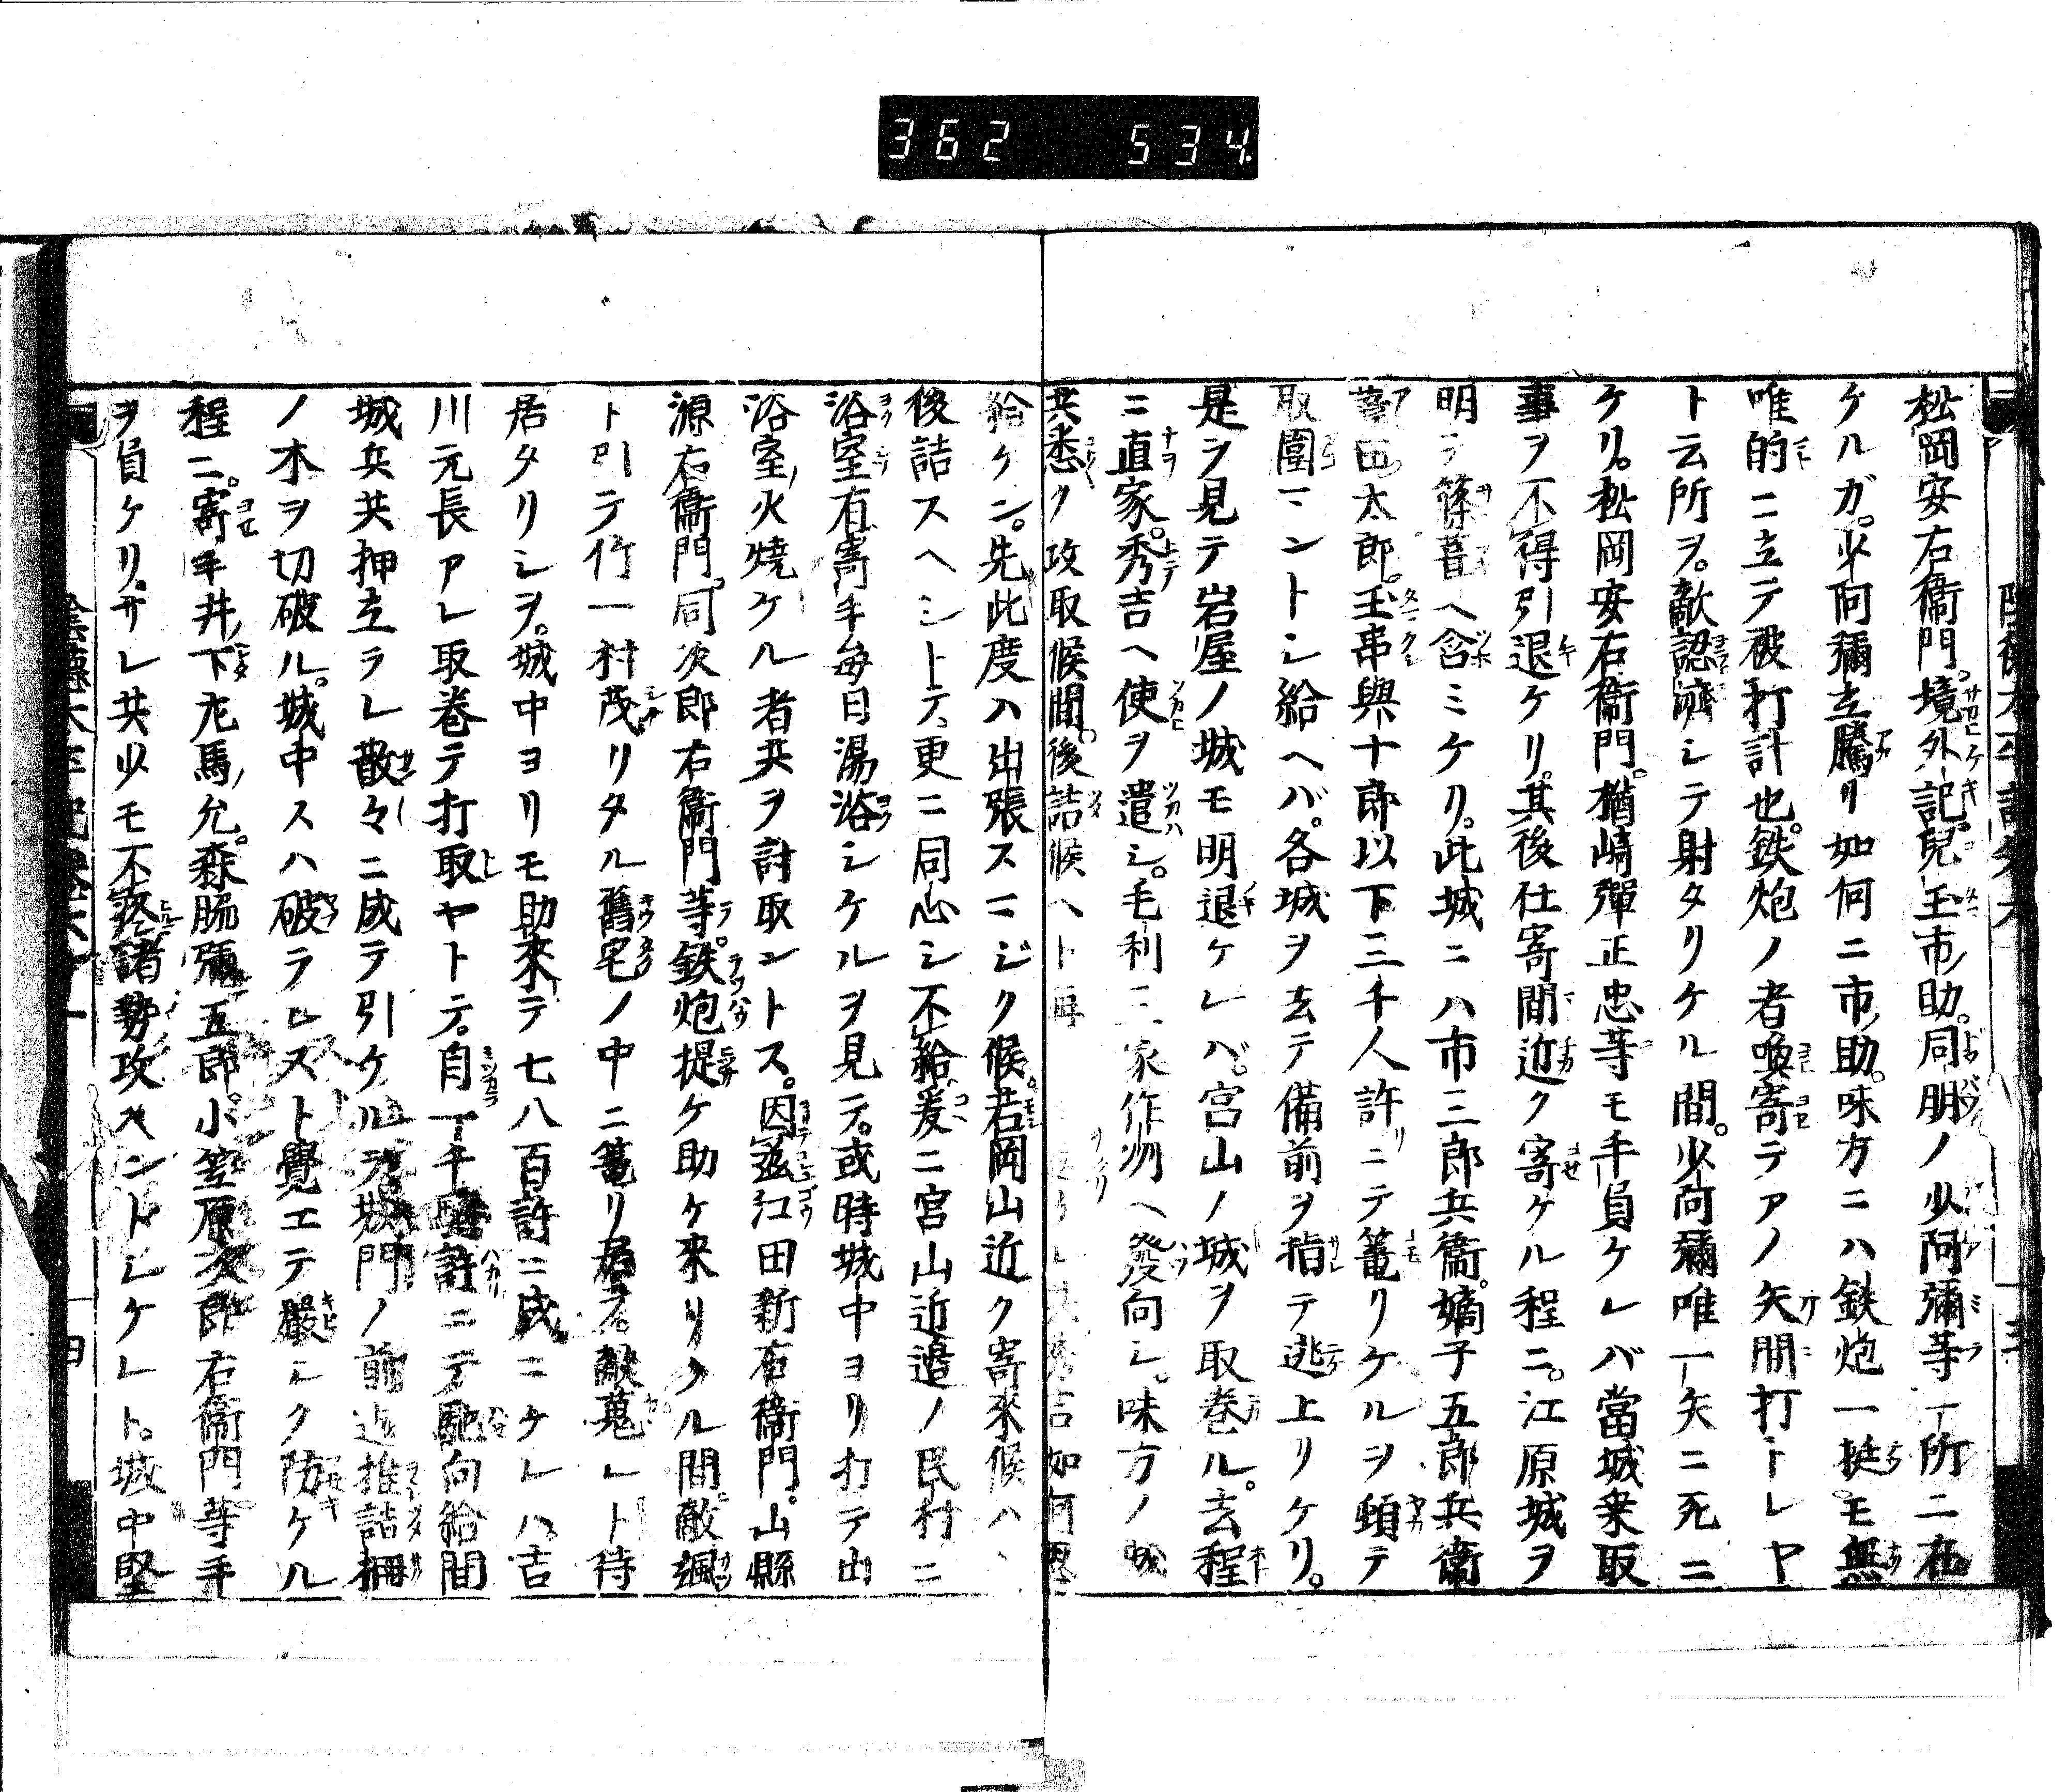 362 534
松岡安右衞門。境外記。兒玉市ノ助。同朋ノ少阿彌等一所ニ在
ケルガ。少阿彌立騰リ如何ニ市ノ助。味方ニハ鉄炮一挺モ無
唯的ニ立テ破打計也。鉄炮ノ者喚寄テアノ矢間打トレヤ
ト云所ヲ。敵認濟シテ射タリケル間。少阿彌唯一矢ニ死ニ
ケリ。松岡安右衞門。楢崎彈正忠等モ手負ケレバ當城乗取
事ヲ不得引退ケリ。其後仕寄間近ク寄ケル程ニ。江原城ヲ
明テ篠葺ヘ含ミケリ。此城ニハ市三郎兵衞。嫡子五郎兵衞
太郎。玉串與十郎以下三千人許ニテ籠リケルヲ頓テ
取圍マントシ給ヘバ。各城ヲ去テ備前ヲ指テ迯上リケリ。
是ヲ見テ岩屋ノ城モ明退ケレバ。宮山ノ城ヲ取巻ル。去程
ニ直家。秀吉ヘ使ヲ遣シ。毛利三家作州ヘ發向シ。味方ノ城
共悉ク攻取候間。後詰候ヘト 吉如何
給ケン。先此度ハ出張スマジク候。若岡山近ク寄來候ハヽ
後詰スヘシトテ更ニ同心シ不給爰ニ宮山近邊ノ民村ニ
浴室有。寄手毎日湯浴シケルヲ見テ。或時城中ヨリ打テ出
浴室ノ火燒ケル者共ヲ討取ントス。因茲江田新右衞門。山縣
源右衞門。同次郎右衞門等。鉄炮提ケ助ケ來リケル間敵颯
ト引テ竹一村茂リタル舊宅ノ中ニ篭リ居テ。敵蒐レト待
居タリシヲ。城中ヨリモ助來テ七八百許ニ成ニケレハ。吉
川元長アレ取巻テ打取ヤトテ。自一千騎許ニテ馳向給間
城兵共押立ラレ散々ニ成テ引ケルヲ城門ノ前迄推詰柵
ノ木ヲ切破ル。城中スハ破ラレヌト覺エテ嚴シク防ケル
程ニ。寄手井ノ下尤馬ノ允。森脇彌五郎。小笠原次郎右衞門等手
ヲ負ケリ。サレ共少モ不疼諸勢攻ヘントシケレト。城中堅